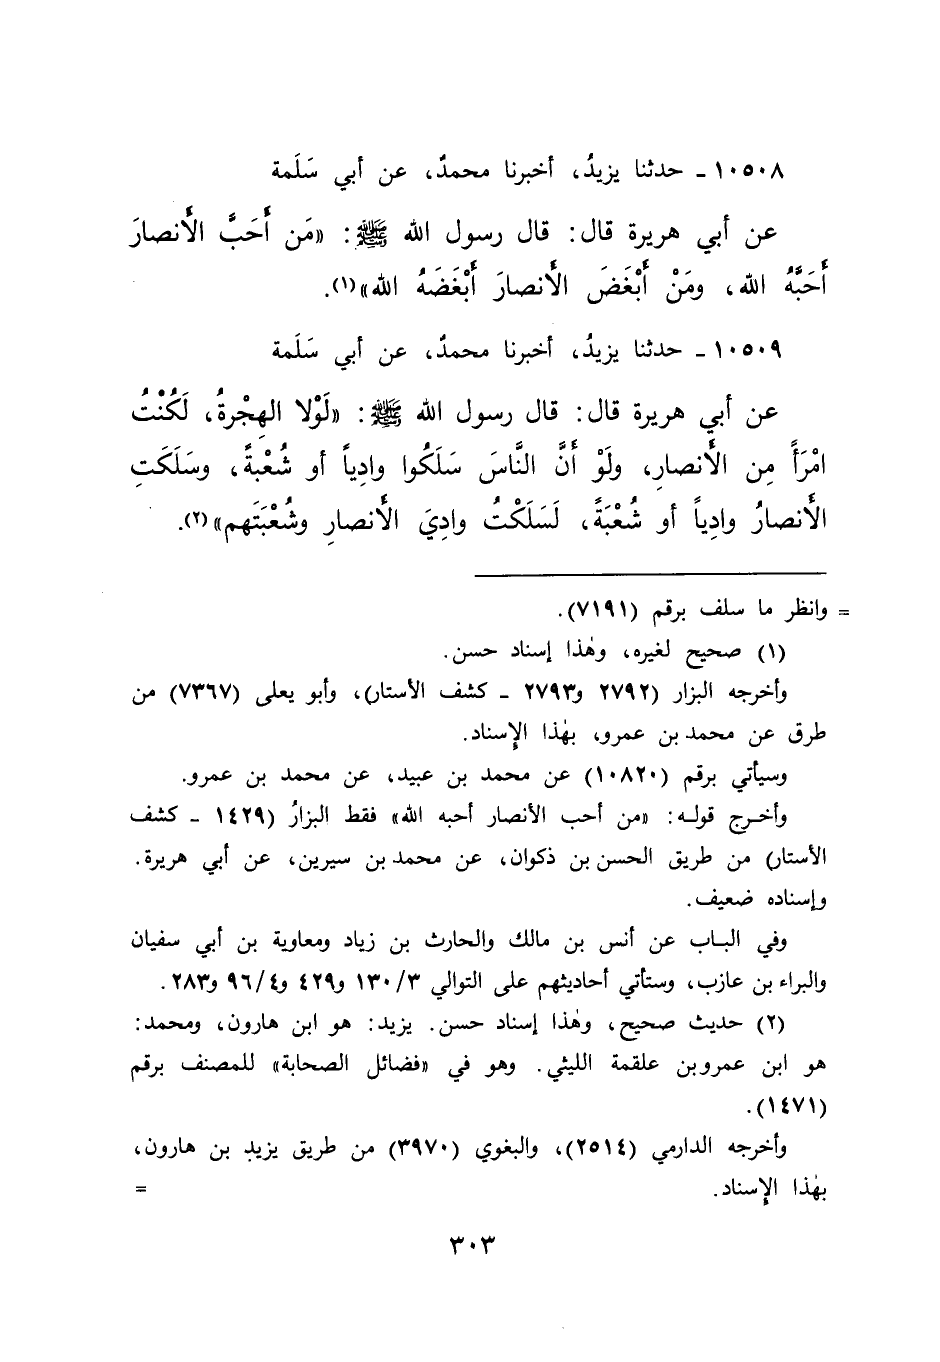 ١٠٥٠٨ ـ حدثنا يزيدُ، أخبرنا محمدٌ، عن أبي سَلَمة
عن أبي هريرة قال: قال رسول الله ﷺ: «مَن أَحَبَّ الأَنصارَ
أَحَبَّهُ الله، ومَنْ أَبْغَضَ الأَنصارَ أَبْغَضَهُ الله»(١).
١٠٥٠٩ ـ حدثنا يزيدُ، أخبرنا محمدٌ، عن أبي سَلَمة
عن أبي هريرة قال: قال رسول الله ﷺ: «لَوْلا الهِجْرةُ، لَكُنْتُ
امْرَأً مِن الأَنصارِ، ولَوْ أَنَّ النَّاسَ سَلَكُوا وادِياً أو شُعْبةً، وسَلَكَتِ
الأَنصارُ وادِياً أو شُعْبَةً، لَسَلَكْتُ وادِيَ الأَنصارِ وشُعْبَتَهم»(٢).
= وانظر ما سلف برقم (٧١٩١).
(١) صحيح لغيره، وهٰذا إسناد حسن.
وأخرجه البزار (٢٧٩٢ و٢٧٩٣ ـ كشف الأستار)، وأبو يعلى (٧٣٦٧) من
طرق عن محمد بن عمرو، بهٰذا الإِسناد.
وسيأتي برقم (١٠٨٢٠) عن محمد بن عبيد، عن محمد بن عمرو.
وأخرج قوله: «من أحب الأنصار أحبه الله» فقط البزارُ (١٤٢٩ ـ كشف
الأستار) من طريق الحسن بن ذكوان، عن محمد بن سيرين، عن أبي هريرة.
وإسناده ضعيف.
وفي الباب عن أنس بن مالك والحارث بن زياد ومعاوية بن أبي سفيان
والبراء بن عازب، وستأتي أحاديثهم على التوالي ١٣٠/٣ و٤٢٩ و٩٦/٤ و٢٨٣.
(٢) حديث صحيح، وهٰذا إسناد حسن. يزيد: هو ابن هارون، ومحمد:
هو ابن عمرو بن علقمة الليثي. وهو في «فضائل الصحابة» للمصنف برقم
(١٤٧١).
وأخرجه الدارمي (٢٥١٤)، والبغوي (٣٩٧٠) من طريق يزيد بن هارون،
بهٰذا الإِسناد. =
٣٠٣